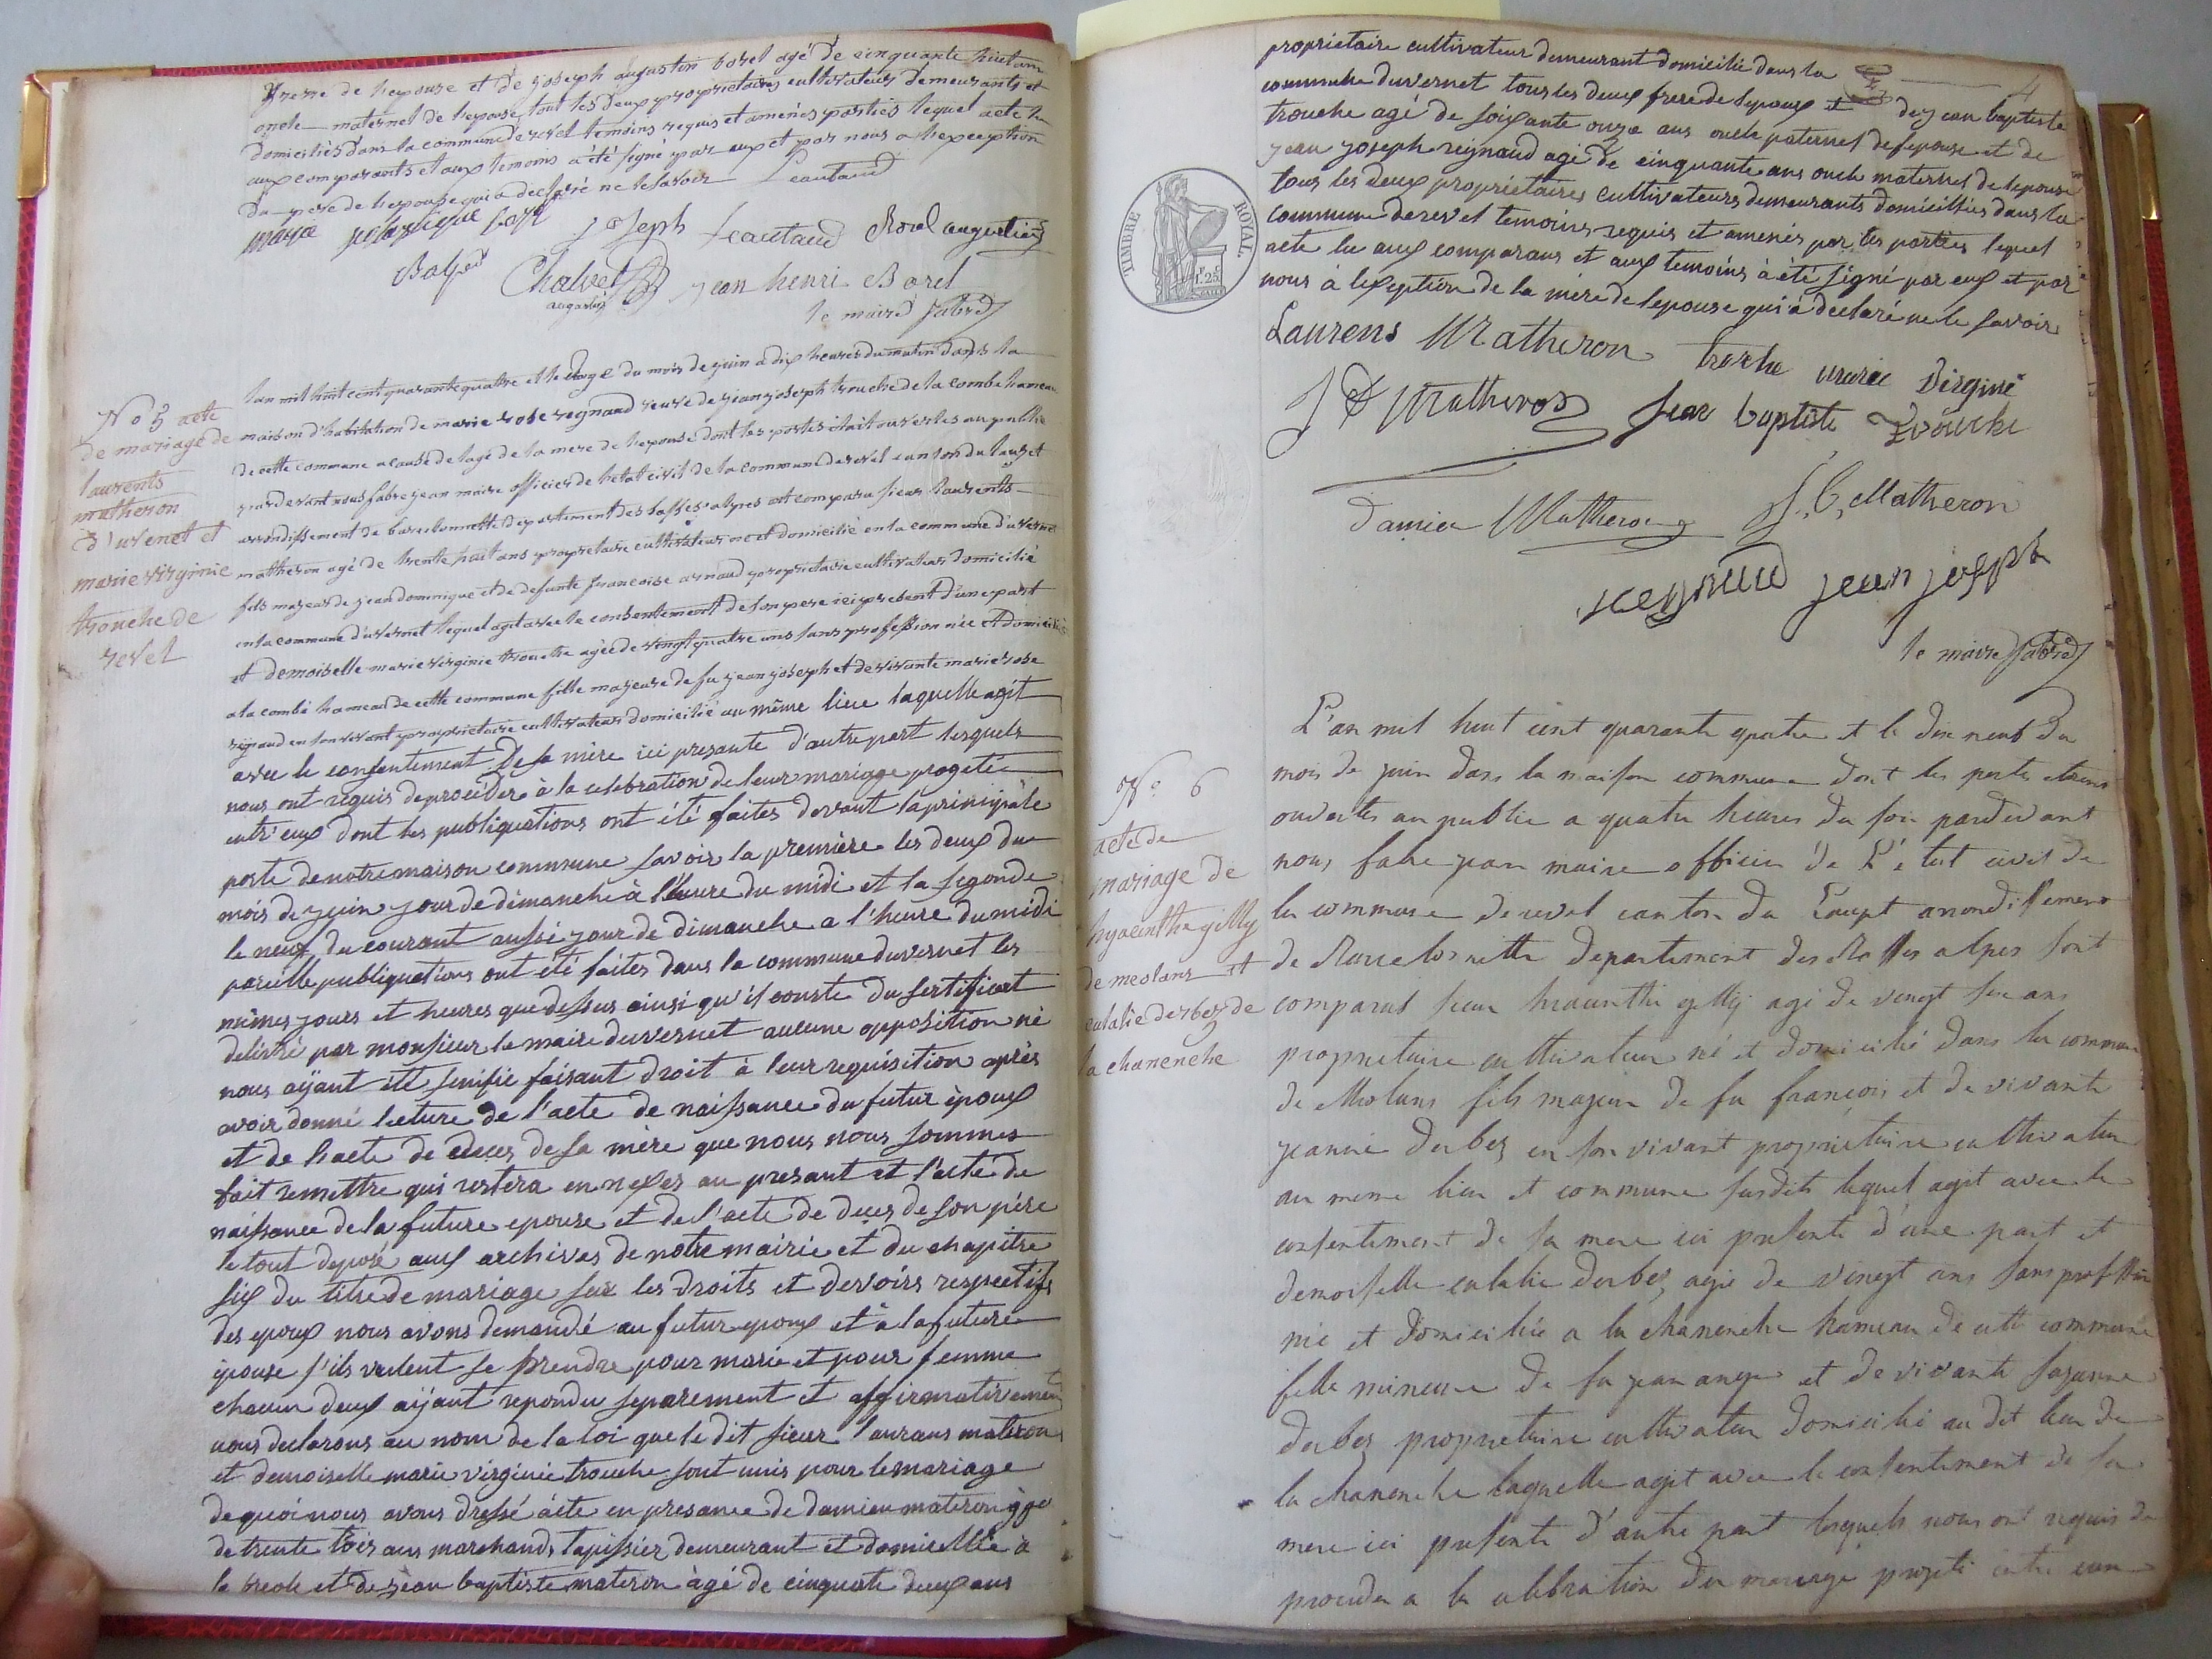 frere de lepouse et de joseph augustin borel agé de cinquante huit ans
oncle maternel de lepouse tout les deux proprietaires cultivateurs demeurants et
domiciliés dans la commune de revel temoins requis et amenés parties lequel acte lu
aux comparants et aux temoins a été signé par eux et par nous a lexception
du pere de lepouse qui a declaré ne le savoir Leautaud
joseph Leautaud Borel augustin
Chalvet jean henri Borel
augustin
le maire fabre
No 5 acte
de mariage de
laurents
matheron
d'uvernet et
marie virginie
trouche de
revel
lan mil huit cent quarante quatre et le onze du mois de juin a dix heures du matin dans la
maison d'habitation de marie rose reynaud veuve de jean joseph trouche de la combe hameau
de cette commune a cause de lagé de la mere de lepouse dont les portes etait ouvertes au public
pardevant nous fabre jean maire officier de letat civil de la commune de revel canton du lauzet
arrondissement de barcelonnette departement des basses alpes est comparu sieur laurents
matheron agé de trente huit ans propretaire cultivateur né et domicilié en la commune d'uvernet
fils majeur de jean dominique et de defunte francoise arnaud proprietaire cultivateur domicilié
en la commune d'uvernet lequel agit avec le consentement de son pere ici present d'une part
et demoiselle marie virginie trouche agée de vingt quatre ans sans profession née et domiciliée
a la combe hameau de cette commune fille majeure de fu jean joseph et de vivante marie rose
reynaud en son vivant proprietaire cultivateur domicilié au même lieu laquelle agit
avec le consentement de sa mère ici presante d'autre part lesquels
nous ont requis de procéder à la celebration de leur mariage progeté
entr'eux dont les publiquations ont été faites devant la principale
porte de notre maison commune savoir la première les deux du
mois de juin jour de dimanche à l'heure du midi et la segonde
le neuf du courant aussi jour de dimanche a l'heure du midi
pareille publiquations ont été faites dans la commune duvernet les
mêmes jours et heures que dessus ainsi qu'il conste du sertificat
delivré par monsieur le maire duvernet aucune opposition ne
nous aÿant été sinifié faisant droit à leur requisition après
avoir donné lecture de l'acte de naissance du futur époux
et de lacte de deces de sa mère que nous nous sommes
fait remettre qui restera en nexes au presant et l'acte de
naissance de la future epouse et de l'acte de deces de son père
le tout deposé aux archives de notre mairie et du chapitre
six du titre de mariage sur les droits et devoirs respectifs
des epoux nous avons demandé au futur epoux et à la future
épouse s'ils veulent se prendre pour mari et pour femme
chacun deux aÿant repondu separement et affirmativement
nous declarons au nom de la loi que le dit sieur laurans materon
et demoiselle marie virginie trouche sont unis pour le mariage
de quoi nous avons dressé acte en presance de damien materon agé
de trente trois ans marchand tapissier demeurant et domicillié à
la breole et de jean baptiste materon àgé de cinquate deux ans
4
proprietaire cultivateur demeurant domicilié dans la
commune duvernet tous les deux frere de lepoux et de jean baptiste
trouche agé de soixante onze ans oncle paternel de lepouse et de
jean joseph reignaud agé de cinquante ans oncle maternel de lepouse
tous les deux proprietaires cultivateurs demeurants domicilliés dans la
commune de revel temoins requis et amenés par les parties lequel
acte lu aux comparans et aux temoins à été signé par eux et par
nous à lexseption de la mère de lepouse qui a déclaré ne le savoir
TIMBRE ROYAL
1f.25c
Laurens Matheron trouche marie virginie
J D Matheron jean baptiste trouche
damien Matheron J, B, Matheron
reynaud jean joseph
le maire fabre
No 6
acte de
mariage de
hyacinthe gilly
de meolans et
eulalie derbez de
la chanenche
L'an mil huit cent quarante quatre et le dix neuf du
mois de juin dans la maison commune dont les portes etaient
ouvertes au public a quatre heures du soir pardevant
nous fabre jean maire officier de L'état civil de
la commune de revel canton du Lauzet arrondissement
de Barcelonnette departement des Basses alpes sont
comparus sieur hiacinthe gilly agé de vingt six ans
proprietaire cultivateur né et domicilié dans la commune
de Meolans fils majeur de fu françois et de vivante
jeanne derbez en son vivant proprietaire cultivateur
au meme lieu et commune susdits lequel agit avec le
consentement de sa mere ici presente d'une part et
demoiselle eulalie derbez agée de vingt ans sans profession
née et domiciliée a la chanenche hameau de cette commune
fille mineure de fu jean ange et de vivante sazanne
derbez proprietaire cultivateur domicilié au dit lieu de
la chanenche laquelle agit avec le consentement de sa
mere ici presente d'autre part lesquels nous ont requis de
proceder a la celebration du mariage projeté entre eux